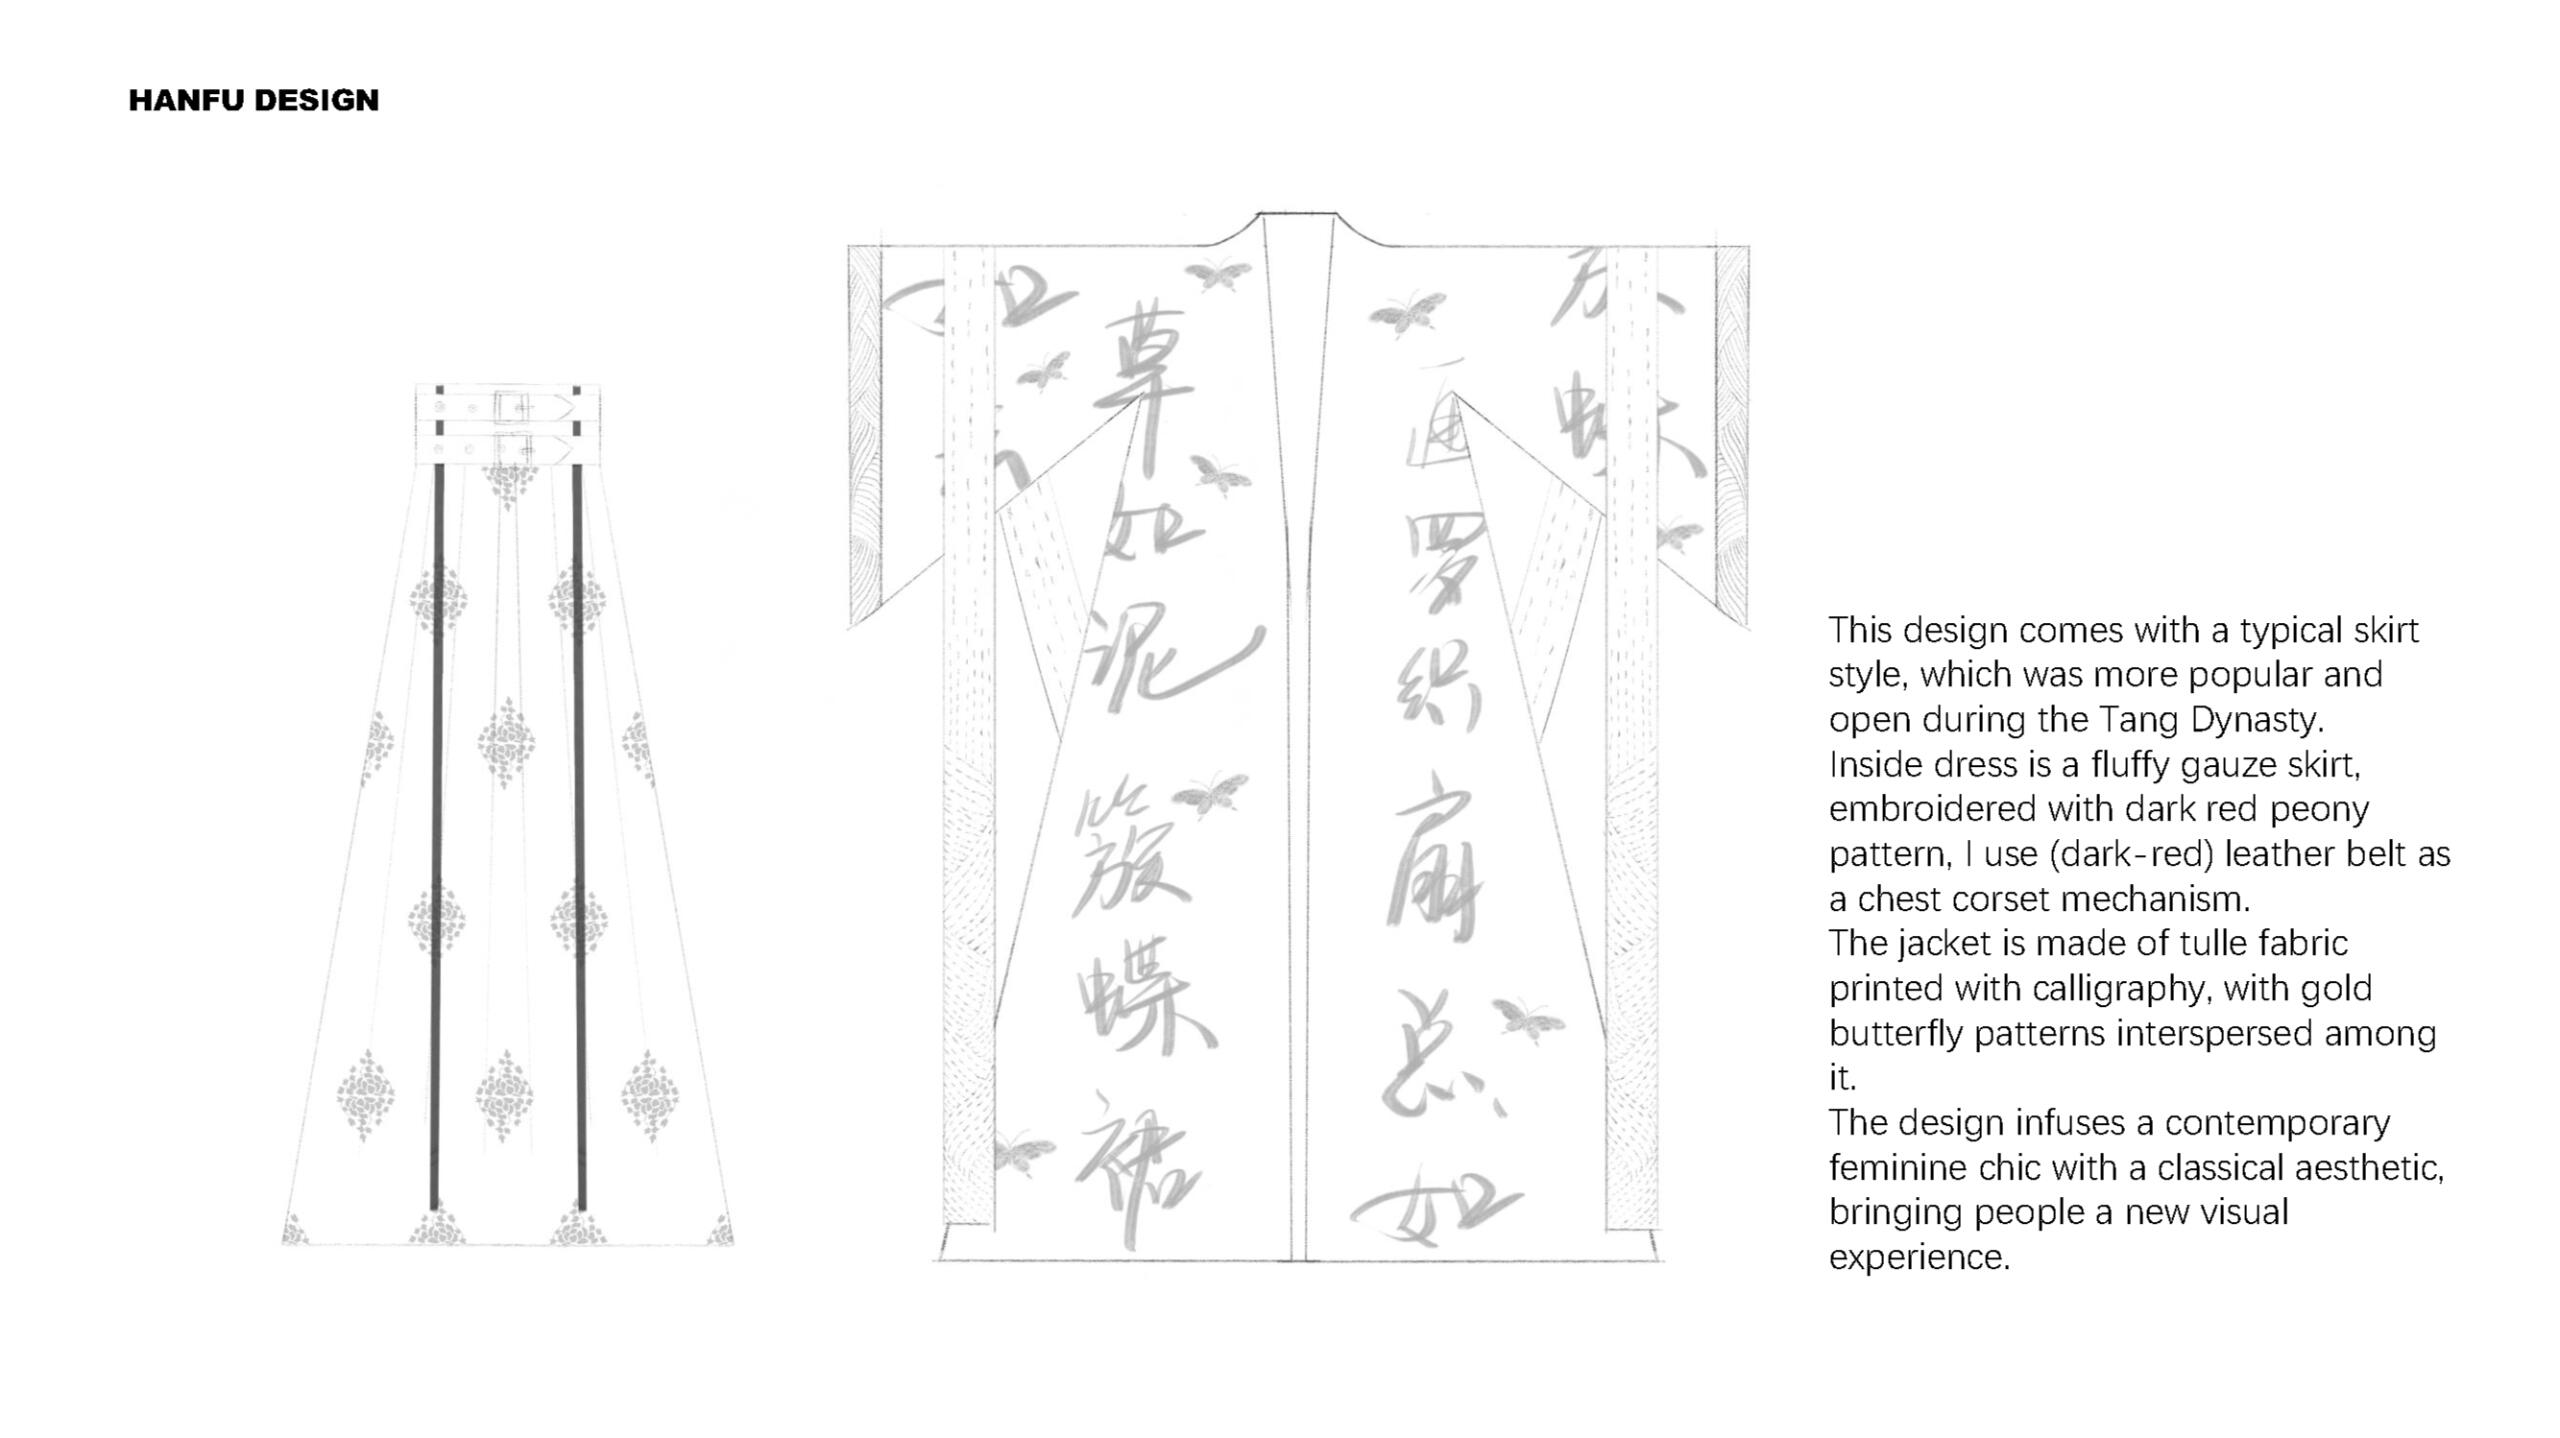 HANFU DESIGN
罗织扇总如
草如泥簇蝶裙
This design comes with a typical skirt
style, which was more popular and
open during the Tang Dynasty.
Inside dress is a fluffy gauze skirt,
embroidered with dark red peony
pattern, I use (dark-red) leather belt as
a chest corset mechanism.
The jacket is made of tulle fabric
printed with calligraphy, with gold
butterfly patterns interspersed among
it.
The design infuses a contemporary
feminine chic with a classical aesthetic,
bringing people a new visual
experience.